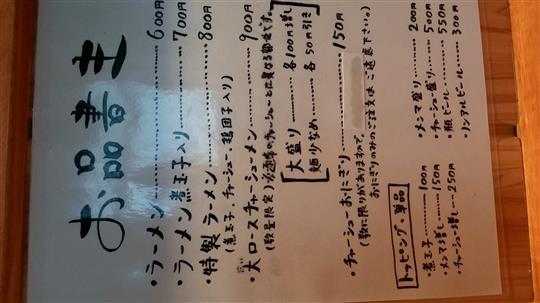 お品書き
・ラーメン 600円
・ラーメン煮玉子入り 700円
・特製ラーメン 800円
(煮玉子、チャーシュー、鶏団子入り)
・大ロースチャーシューメン 900円
(数量限定)※通常のチャーシューと異なる部位です。
大盛り 各100円増し
麺少なめ 各50円引き
・チャーシューおにぎり 150円
(数に限りがありますので、
おにぎりのみのご注文はご遠慮下さい。)
トッピング・単品
・煮玉子 100円
・メンマ増し 150円
・チャーシュー増し 250円
・メンマ盛り 200円
・チャーシュー盛り 500円
・瓶ビール 550円
・ノンアルビール 300円